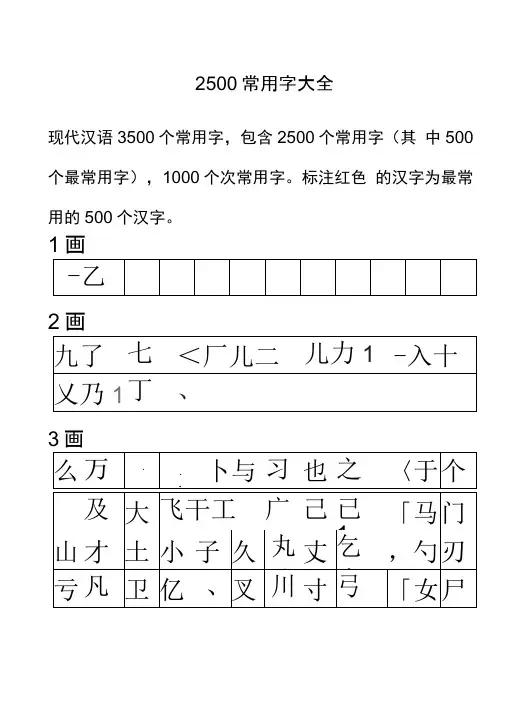 2500常用字大全
现代汉语3500个常用字，包含2500个常用字（其 中500
个最常用字），1000个次常用字。标注红色 的汉字为最常
用的500个汉字。
1画
-乙
2画
九了 七 ＜厂儿二 儿力1 -入十
乂乃1丁 、
3画
么万 . : 卜与习也之 〈于个
及大飞干工 广己己「马门
山才土小子久丸丈乞，勺刃
亏凡卫亿、叉川寸弓「女尸